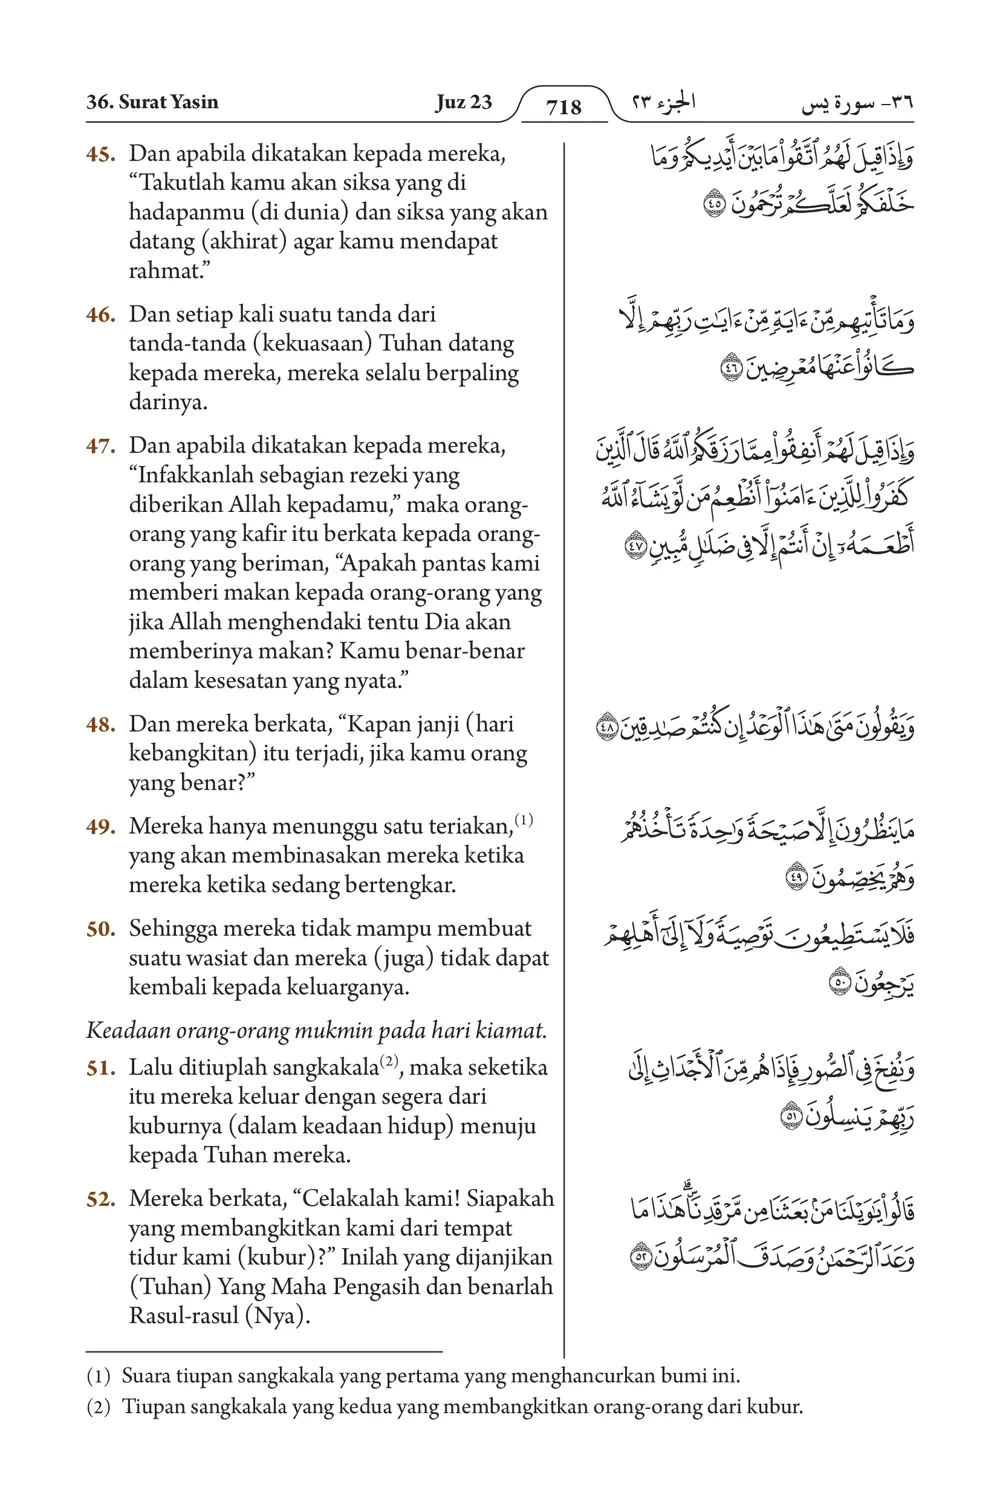 36. Surat Yasin
Juz 23
718
الجزء ٢٣
٣٦- سورة يس
45. Dan apabila dikatakan kepada mereka,
“Takutlah kamu akan siksa yang di
hadapanmu (di dunia) dan siksa yang akan
datang (akhirat) agar kamu mendapat
rahmat.”
وَإِذَا قِيلَ لَهُمُ ٱتَّقُوا۟ مَا بَيْنَ أَيْدِيكُمْ وَمَا
خَلْفَكُمْ لَعَلَّكُمْ تُرْحَمُونَ ٤٥
46. Dan setiap kali suatu tanda dari
tanda-tanda (kekuasaan) Tuhan datang
kepada mereka, mereka selalu berpaling
darinya.
وَمَا تَأْتِيهِم مِّنْ ءَايَةٍ مِّنْ ءَايَٰتِ رَبِّهِمْ إِلَّا
كَانُوا۟ عَنْهَا مُعْرِضِينَ ٤٦
47. Dan apabila dikatakan kepada mereka,
“Infakkanlah sebagian rezeki yang
diberikan Allah kepadamu,” maka orang-
orang yang kafir itu berkata kepada orang-
orang yang beriman, “Apakah pantas kami
memberi makan kepada orang-orang yang
jika Allah menghendaki tentu Dia akan
memberinya makan? Kamu benar-benar
dalam kesesatan yang nyata.”
وَإِذَا قِيلَ لَهُمْ أَنفِقُوا۟ مِمَّا رَزَقَكُمُ ٱللَّهُ قَالَ ٱلَّذِينَ
كَفَرُوا۟ لِلَّذِينَ ءَامَنُوٓا۟ أَنُطْعِمُ مَن لَّوْ يَشَآءُ ٱللَّهُ
أَطْعَمَهُۥٓ إِنْ أَنتُمْ إِلَّا فِى ضَلَٰلٍ مُّبِينٍ ٤٧
48. Dan mereka berkata, “Kapan janji (hari
kebangkitan) itu terjadi, jika kamu orang
yang benar?”
وَيَقُولُونَ مَتَىٰ هَٰذَا ٱلْوَعْدُ إِن كُنتُمْ صَٰدِقِينَ ٤٨
49. Mereka hanya menunggu satu teriakan,(1)
yang akan membinasakan mereka ketika
mereka ketika sedang bertengkar.
مَا يَنظُرُونَ إِلَّا صَيْحَةً وَٰحِدَةً تَأْخُذُهُمْ
وَهُمْ يَخِصِّمُونَ ٤٩
50. Sehingga mereka tidak mampu membuat
suatu wasiat dan mereka (juga) tidak dapat
kembali kepada keluarganya.
فَلَا يَسْتَطِيعُونَ تَوْصِيَةً وَلَآ إِلَىٰٓ أَهْلِهِمْ
يَرْجِعُونَ ٥٠
Keadaan orang-orang mukmin pada hari kiamat.
51. Lalu ditiuplah sangkakala(2), maka seketika
itu mereka keluar dengan segera dari
kuburnya (dalam keadaan hidup) menuju
kepada Tuhan mereka.
وَنُفِخَ فِى ٱلصُّورِ فَإِذَا هُم مِّنَ ٱلْأَجْدَاثِ إِلَىٰ
رَبِّهِمْ يَنسِلُونَ ٥١
52. Mereka berkata, “Celakalah kami! Siapakah
yang membangkitkan kami dari tempat
tidur kami (kubur)?” Inilah yang dijanjikan
(Tuhan) Yang Maha Pengasih dan benarlah
Rasul-rasul (Nya).
قَالُوا۟ يَٰوَيْلَنَا مَنۢ بَعَثَنَا مِن مَّرْقَدِنَا ۜ ۗ هَٰذَا مَا
وَعَدَ ٱلرَّحْمَٰنُ وَصَدَقَ ٱلْمُرْسَلُونَ ٥٢
(1) Suara tiupan sangkakala yang pertama yang menghancurkan bumi ini.
(2) Tiupan sangkakala yang kedua yang membangkitkan orang-orang dari kubur.